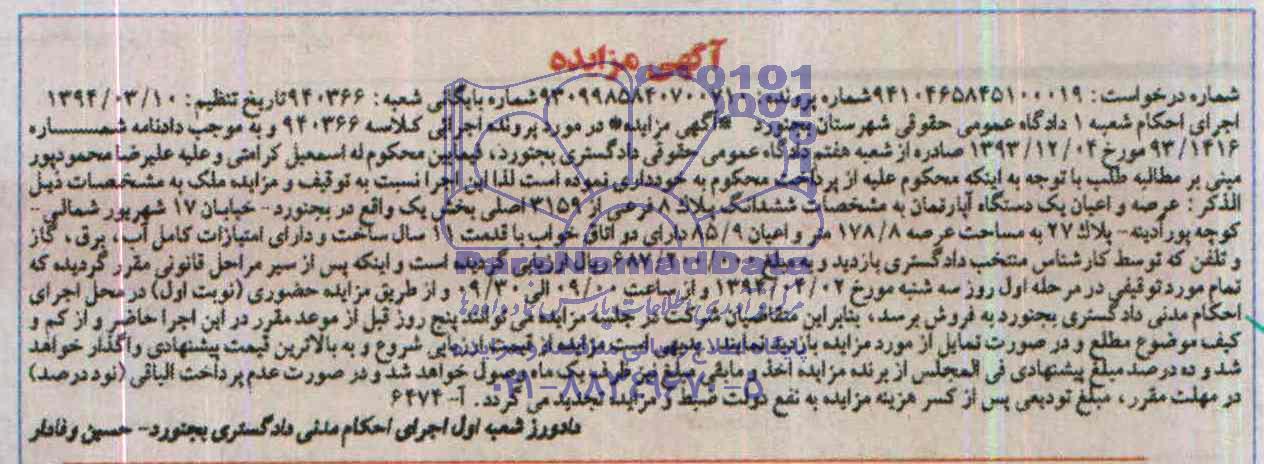 آگهی مزایده
شماره درخواست: ۹۴۱۰۴۶۵۸۴۵۱۰۰۰۱۹ شماره پرونده: ۹۳۰۹۹۸۵۸۴۰۷۰۰۰۷۱ شماره بایگانی شعبه: ۹۴۰۳۶۶ تاریخ تنظیم: ۱۳۹۴/۰۳/۱۰
اجرای احکام شعبه ۱ دادگاه عمومی حقوقی شهرستان بجنورد *آگهی مزایده* در مورد پرونده اجرائی کلاسه ۹۴۰۳۶۶ و به موجب دادنامه شماره
۹۳/۱۴۱۶ مورخ ۱۳۹۳/۱۲/۰۴ صادره از شعبه هفتم دادگاه عمومی حقوقی دادگستری بجنورد، فیمابین محکوم له اسمعیل کرامتی و علیه علیرضا محمودپور
مبنی بر مطالبه طلب با توجه به اینکه محکوم علیه از پرداخت محکوم به خودداری نموده است لذا این اجرا نسبت به توقیف و مزایده ملک به مشخصات ذیل
الذکر: عرصه و اعیان یک دستگاه آپارتمان به مشخصات ششدانگ پلاک ۸ فرعی از ۳۱۵۹ اصلی بخش یک واقع در بجنورد- خیابان ۱۷ شهریور شمالی-
کوچه پورآدینه- پلاک ۲۷ به مساحت عرصه ۱۷۸/۸ متر و اعیان ۸۵/۹ دارای دو اتاق خواب با قدمت ۱۱ سال ساخت و دارای امتیازات کامل آب، برق، گاز
و تلفن که توسط کارشناس منتخب دادگستری بازدید و به مبلغ ۶۸۷/۲۰۰/۰۰۰ ریال ارزیابی گردیده است و اینکه پس از سیر مراحل قانونی مقرر گردیده که
تمام مورد توقیفی در مرحله اول روز سه شنبه مورخ ۱۳۹۴/۰۴/۰۲ و از ساعت ۰۹/۰۰ الی ۰۹/۳۰ و از طریق مزایده حضوری (نوبت اول) در محل اجرای
احکام مدنی دادگستری بجنورد به فروش برسد، بنابراین متقاضیان شرکت در جلسه مزایده می توانند پنج روز قبل از موعد مقرر در این اجرا حاضر و از کم و
کیف موضوع مطلع و در صورت تمایل از مورد مزایده بازدید نمایند. بدیهی است مزایده از قیمت ارزیابی شروع و به بالاترین قیمت پیشنهادی واگذار خواهد
شد و ده درصد مبلغ پیشنهادی فی المجلس از برنده مزایده اخذ و مابقی مبلغ نیز ظرف یک ماه وصول خواهد شد و در صورت عدم پرداخت الباقی (نود درصد)
در مهلت مقرر، مبلغ تودیعی پس از کسر هزینه مزایده به نفع دولت ضبط و مزایده تجدید می گردد. آ-۶۴۷۴
دادورز شعبه اول اجرای احکام مدنی دادگستری بجنورد- حسین وفادار
ParsNamadData
۰۲۱-۸۸۳۴۹۶۷۰-۵